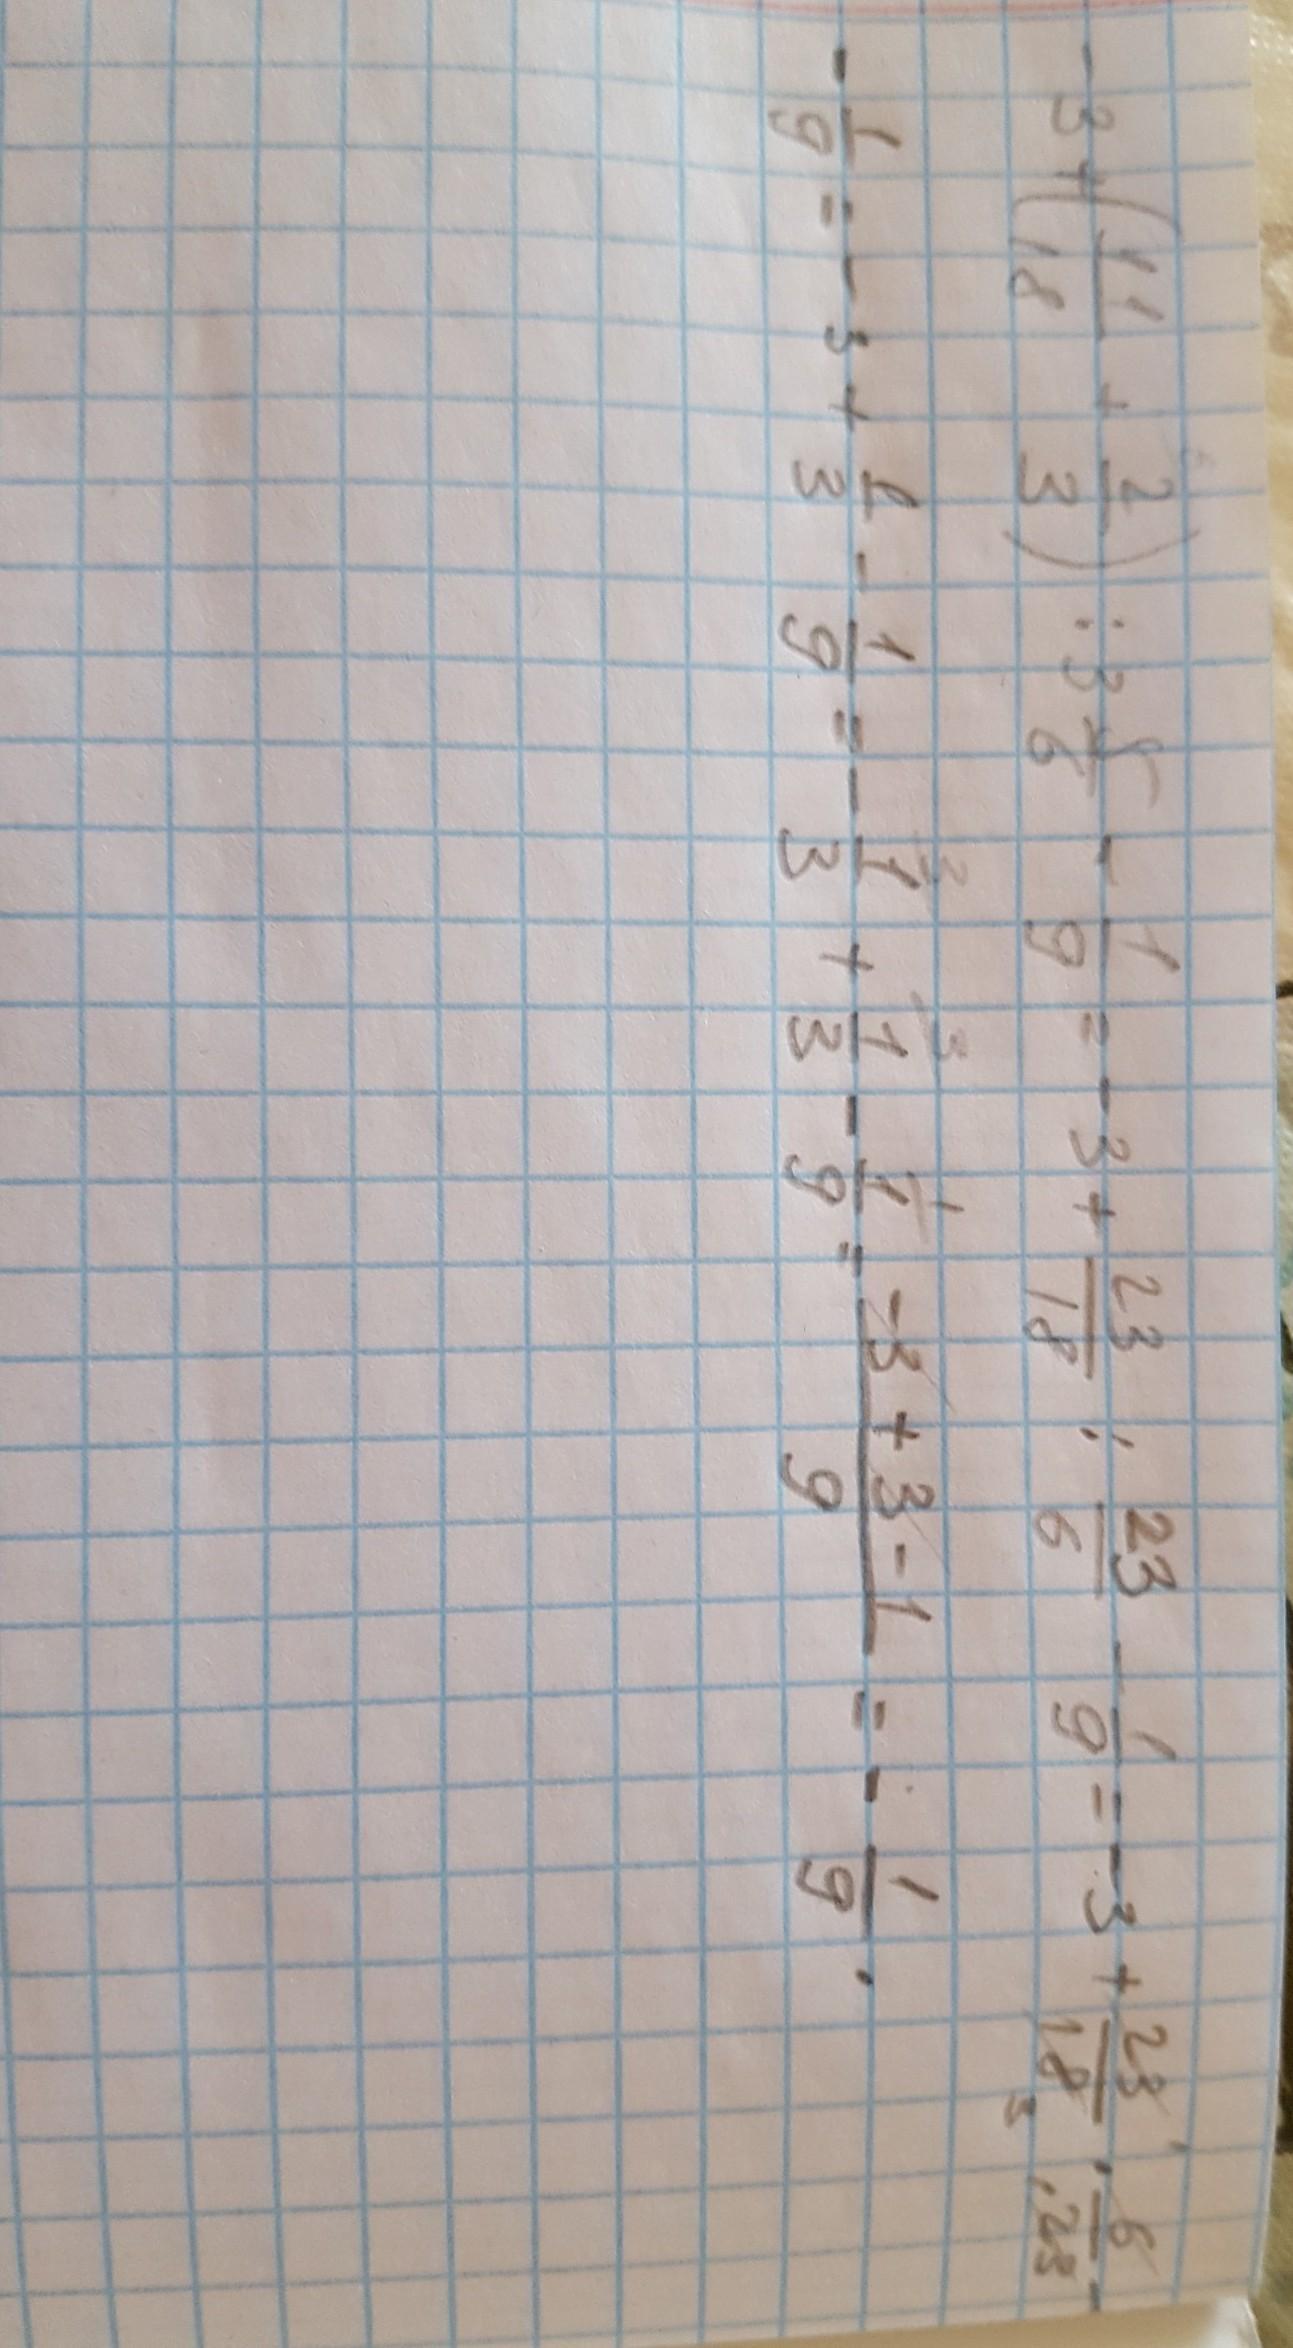 -3+(11/18 + 2/3) : 3 5/6 - 1/9 = -3 + 23/18 : 23/6 - 1/9 = -3 + 23/18 · 6/23 -
- 1/9 = -3 + 1/3 - 1/9 = - 1/3 + 1/3 - 1/9 = -3+3-1/9 = - 1/9.